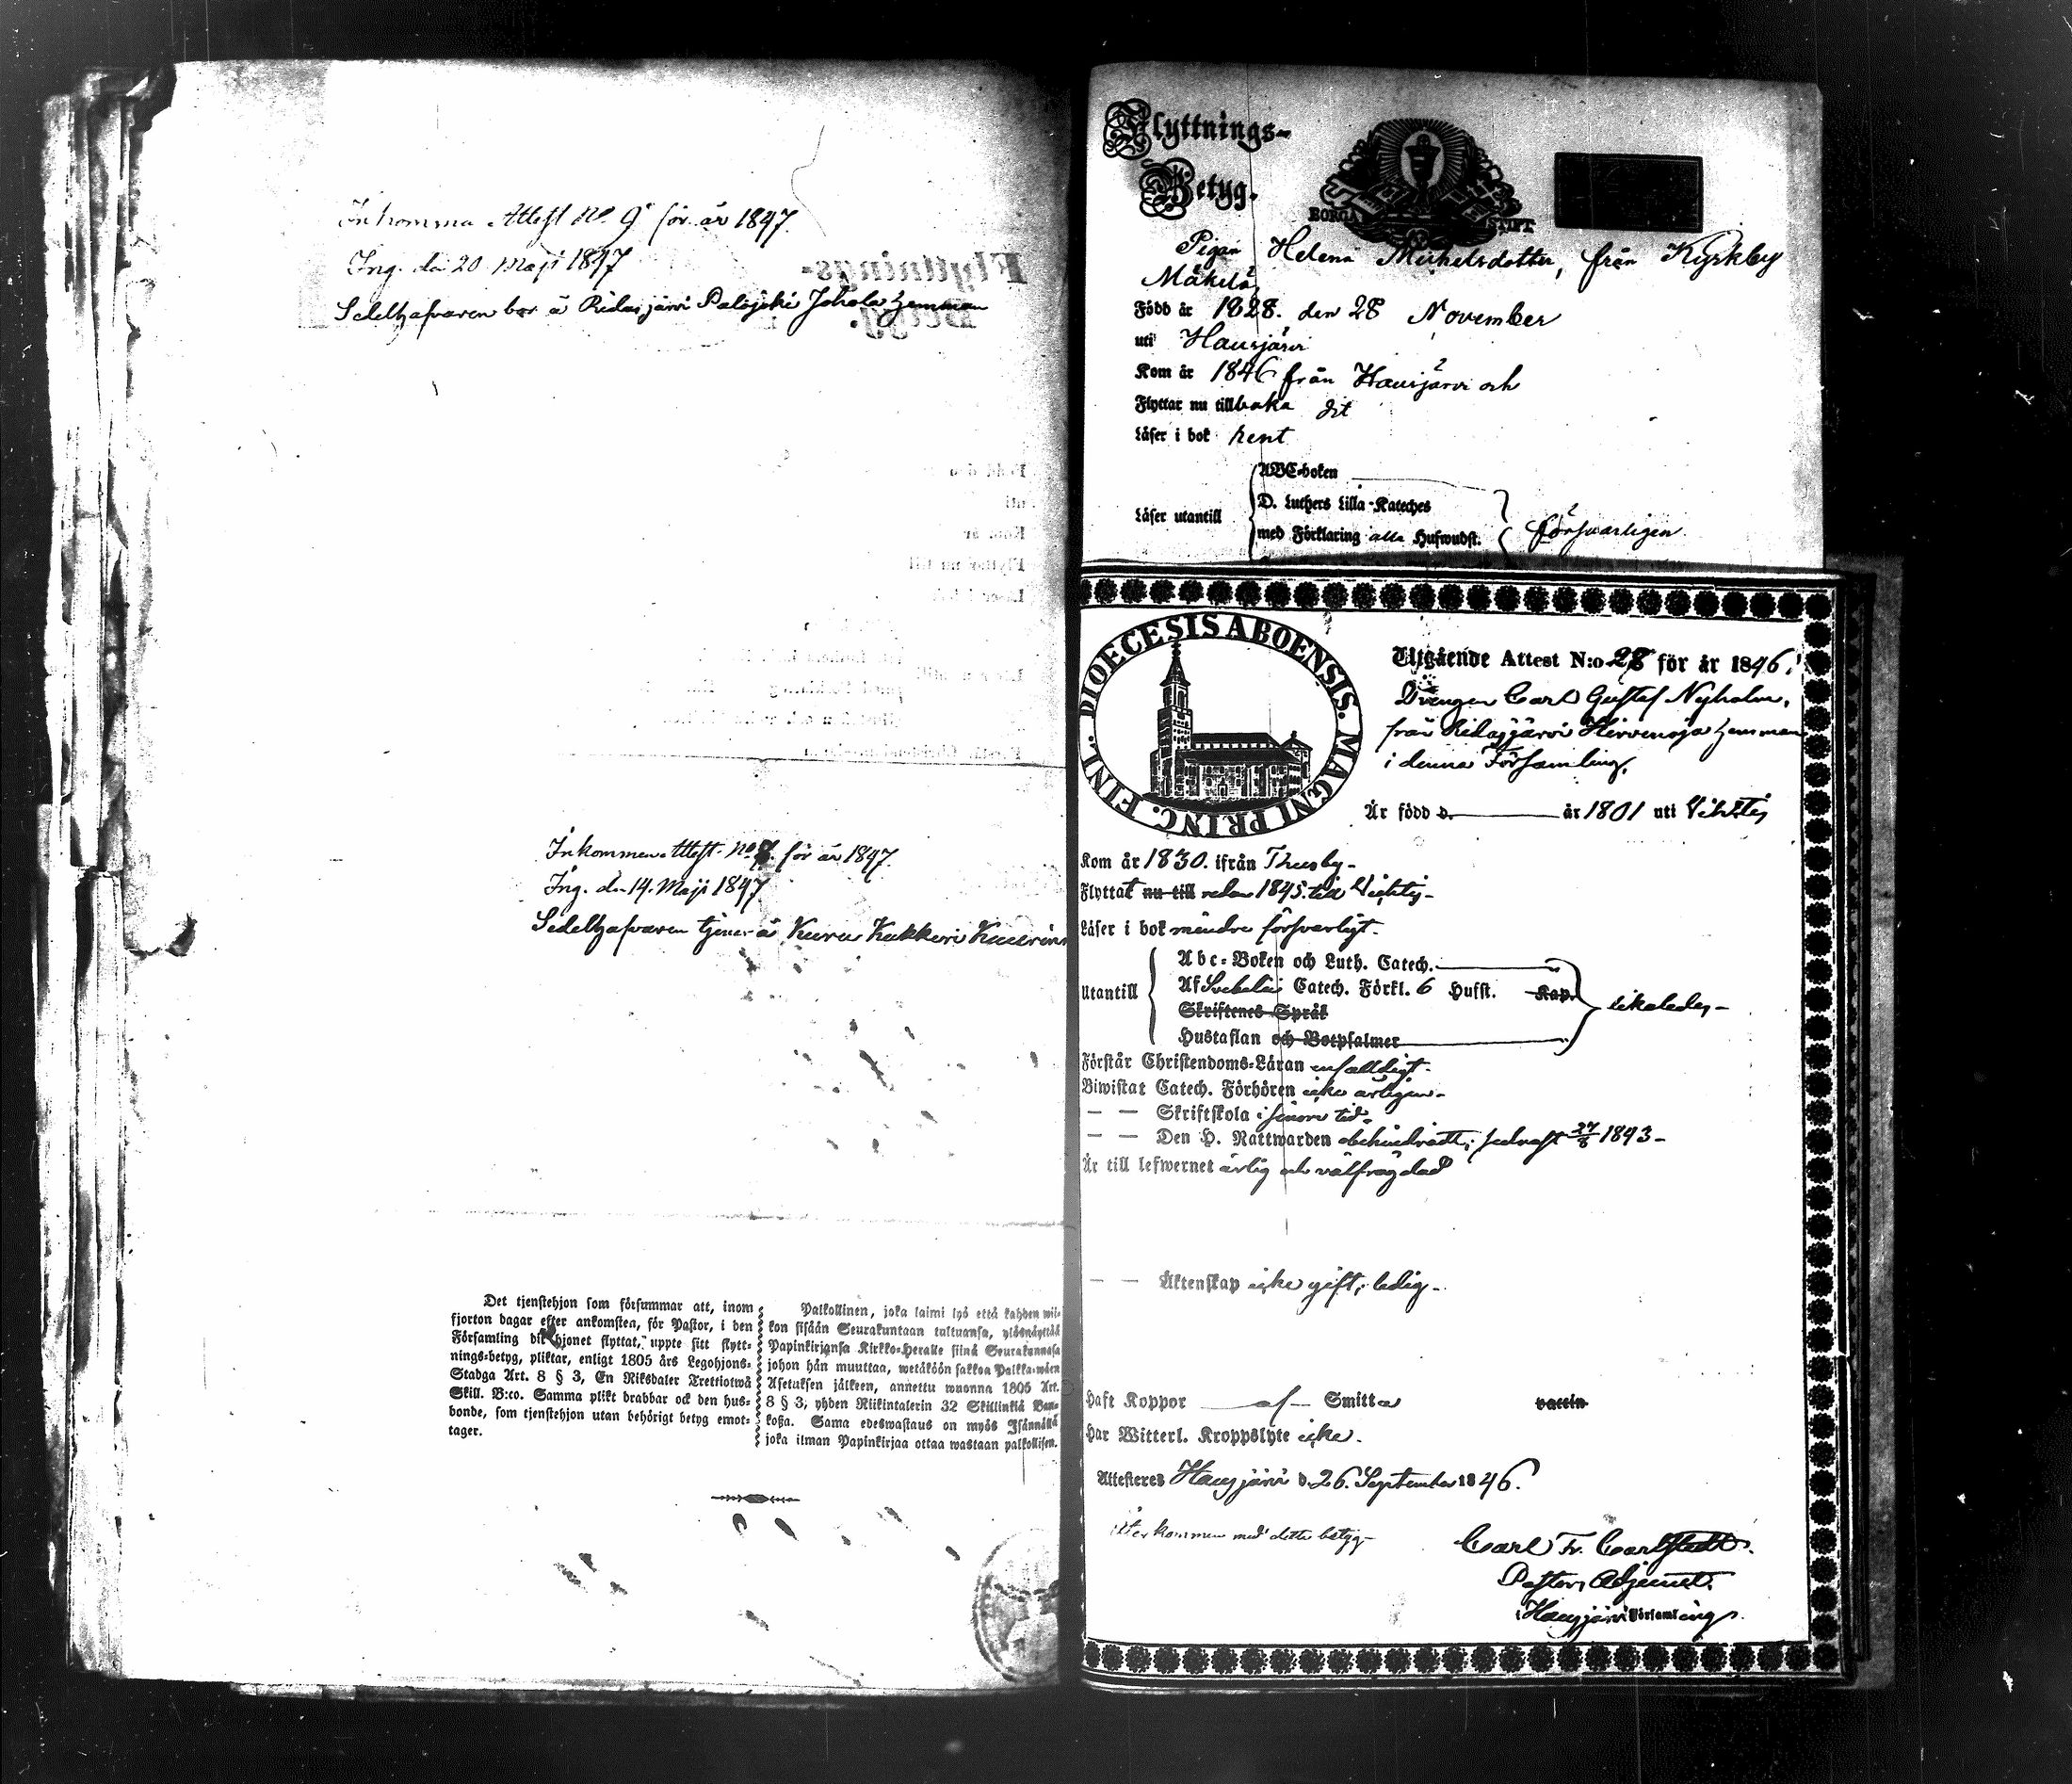 Inkomma Attest No 9 för år 1847.
Ing. den 20 Maji 1847
Sedelhafvaren bor å Ridasjärvi Palojoki Johola hemman
Inkommen Attest No för år 1847.
Ing. d. 14. Maji 1847
Sedelhafvaren tjenar å Kuru Kukkuri
Det tjenstehjon som försummar att, inom
fjorton dagar efter ankomsten, för Pastor, i den
Församling dit hjonet flyttat, uppte sitt flytt-
nings-betyg, pliktar, enligt 1805 års Legohjons-
Stadga Art. 8 § 3, En Riksdaler Trettiotwå
Skill. B:co. Samma plikt drabbar ock den hus-
bonde, som tjenstehjon utan behörigt betyg emot-
tager.
Palkollinen, joka laimi lyö että kahden wii-
kon sisään Seurakuntaan tultuansa, ylösnäyttää
Papinkirjansa Kirkko-Herralle siinä Seurakunnassa
johon hän muuttaa, wetäköön sakkoa Palkka-wäen
Asetuksen jälkeen, annettu wuonna 1805 Art.
8 § 3, yhden Riikintalerin 32 Skillinkiä Ban-
koßa. Sama edeswastaus on myös Isännällä
joka ilman Papinkirjaa ottaa wastaan palkollisen.
Flyttnings-
Betyg.
BORGÅ STIFT
Pigan Helena Michelsdotter, från Kyrkby
Mäkelä
Född år 1828. den 28 November
uti Hausjärvi
Kom år 1846 från Hausjärvi och
Flyttar nu tillbaka dit
Läser i bok rent
ABC-boken
D. Luthers Lilla-Kateches
Läser utantill
med Förklaring alla Hufwudst. försvarligen
DIOECESIS ABOENSIS. MAGNI PRINC. FINL.
Utgående Attest N:o 28 för år 1846.
Drengen Carl Gustaf Nyholm,
från Ridasjärvi Hirvenoja hemman
i denna Församling,
Är född d. år 1801 uti Vichtis
Kom år 1830. ifrån Thusby
Flyttat nu till redan 1845. till Vichtis
Läser i bok mindre försvarligt.
Abc-Boken och Luth. Catech.
Utantill Af Svebelii Catech. Förkl. 6 Hufst. Kap. likaledes
Skriftenes Språk
Hustaflan och Botpsalmer
Förstår Christendoms-Läran enfaldigt.
Biwistat Catech. Förhören icke årligen
— — Skriftskola i sinom tid.
— — Den H. Nattwarden obehindradt, sednast 27/8 1843
Är till lefwernet ärlig och välfrägdad
— — Äktenskap icke gift, ledig
Haft Koppor af Smitta vaccin
Har Witterl. Kroppslyte icke.
Attesteres Hausjärvi d. 26. September 1846.
Återkommen med detta betyg
Carl Fr. Carlstedt.
Pastors Adjunct.
i Hausjärvi Församling.